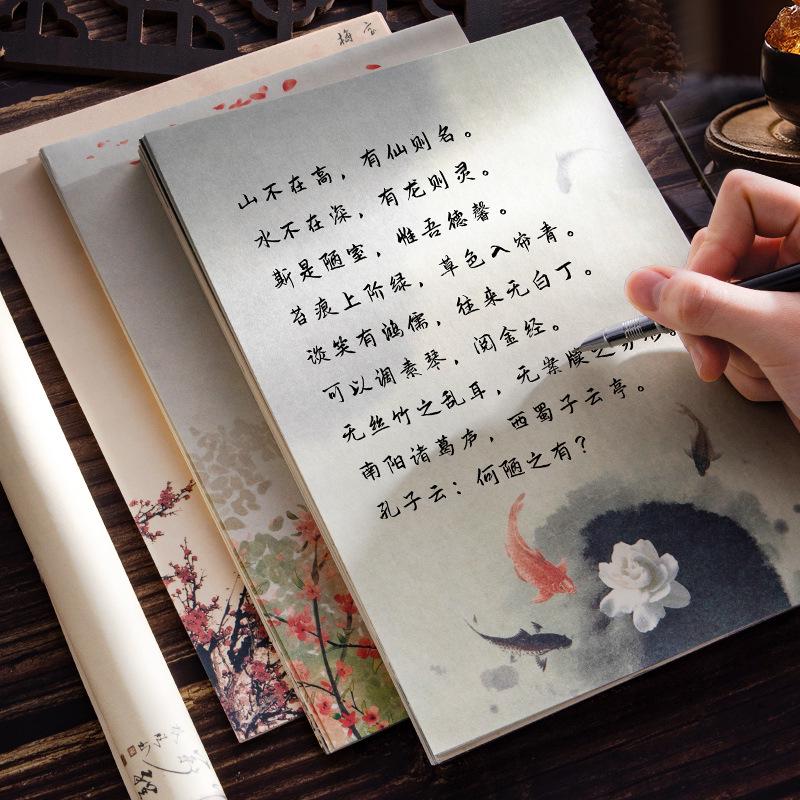 山不在高，有仙则名。
水不在深，有龙则灵。
斯是陋室，惟吾德馨。
苔痕上阶绿，草色入帘青。
谈笑有鸿儒，往来无白丁。
可以调素琴，阅金经。
无丝竹之乱耳，无案牍之
南阳诸葛庐，西蜀子云亭。
孔子云：何陋之有？